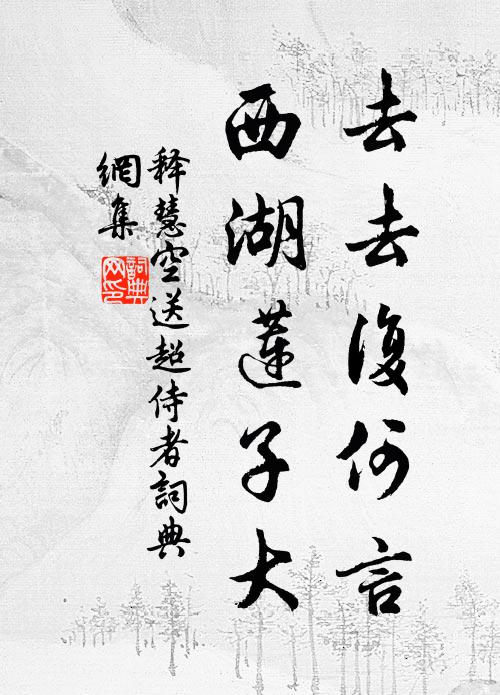 去去復何言
西湖蓮子大
释慧空送超侍者詞典
網集
詞典
网印